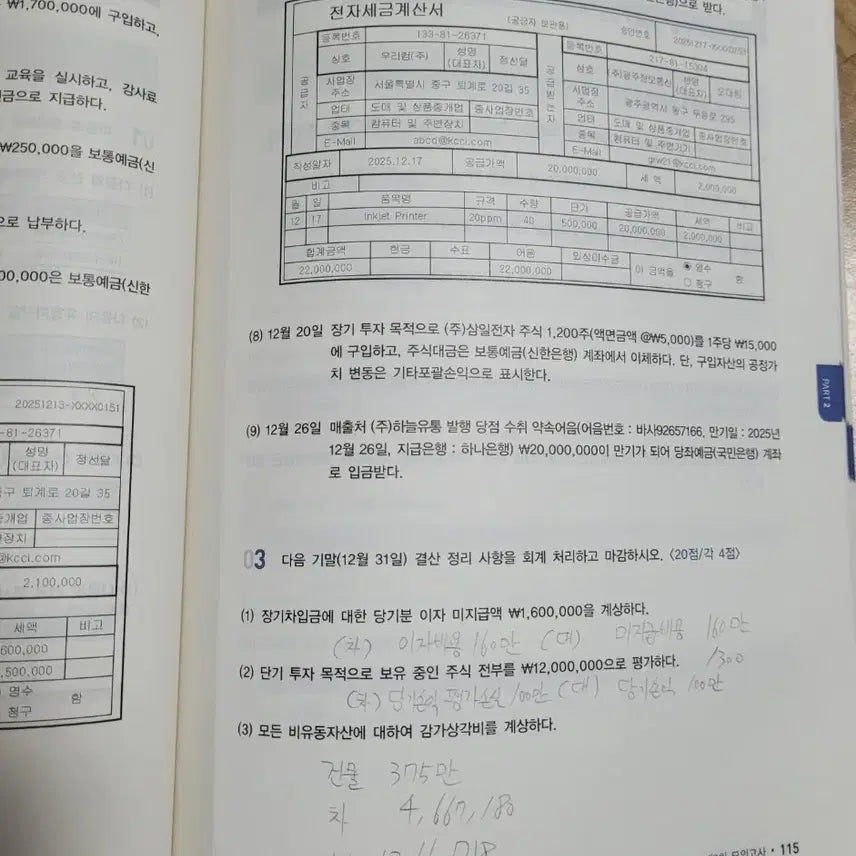 ₩1,700,000에 구입하고,
교육을 실시하고, 강사료
현금으로 지급하다.
₩250,000을 보통예금(신
으로 납부하다.
00,000은 보통예금(신한
20251213-XXXX0151
-81-26371
성명
(대표자) 정선달
구 퇴계로 20길 35
중개업 종사업장번호
변장치
@kcci.com
2,100,000
세액 비고
600,000
,500,000
영수
청구 함
으로 받다.
전자세금계산서 (공급자 보관용) 승인번호 20251217-XXXX0253
공급자 등록번호 133-81-26371
상호 우리컴(주) 성명(대표자) 정선달
사업장주소 서울특별시 중구 퇴계로 20길 35
업태 도매 및 상품중개업 종사업장번호
종목 컴퓨터 및 주변장치
E-Mail abcd@kcci.com
공급받는자 등록번호 217-81-15304
상호 (주)광주정보통신 성명(대표자)
사업장주소 광주광역시 동구 무등로 295
업태 도매 및 상품중개업 종사업장번호
종목 컴퓨터 및 주변기기
E-Mail
작성일자 2025.12.17 공급가액 20,000,000 세액 2,000,000
비고
월 일 품목명 규격 수량 단가 공급가액 세액 비고
12 17 Inkjet Printer 20ppm 40 500,000 20,000,000 2,000,000
합계금액 현금 수표 어음 외상미수금 이 금액을 ◉ 영수 함
22,000,000 22,000,000 ○ 청구
(8) 12월 20일 장기 투자 목적으로 (주)삼일전자 주식 1,200주(액면금액 @₩5,000)를 1주당 ₩15,000
에 구입하고, 주식대금은 보통예금(신한은행) 계좌에서 이체하다. 단, 구입자산의 공정가
치 변동은 기타포괄손익으로 표시한다.
(9) 12월 26일 매출처 (주)하늘유통 발행 당점 수취 약속어음(어음번호 : 바사92657166, 만기일 : 2025년
12월 26일, 지급은행 : 하나은행) ₩20,000,000이 만기가 되어 당좌예금(국민은행) 계좌
로 입금받다.
PART 2
03 다음 기말(12월 31일) 결산 정리 사항을 회계 처리하고 마감하시오. 〈20점/각 4점〉
(1) 장기차입금에 대한 당기분 이자 미지급액 ₩1,600,000을 계상하다.
(차) 이자비용 160만 (대) 미지급비용 160만
(2) 단기 투자 목적으로 보유 중인 주식 전부를 ₩12,000,000으로 평가하다. 1300
(차) 당기손익 평가손실 100만 (대) 당기손익 100만
(3) 모든 비유동자산에 대하여 감가상각비를 계상하다.
건물 375만
차 4,667,180
모의고사 • 115